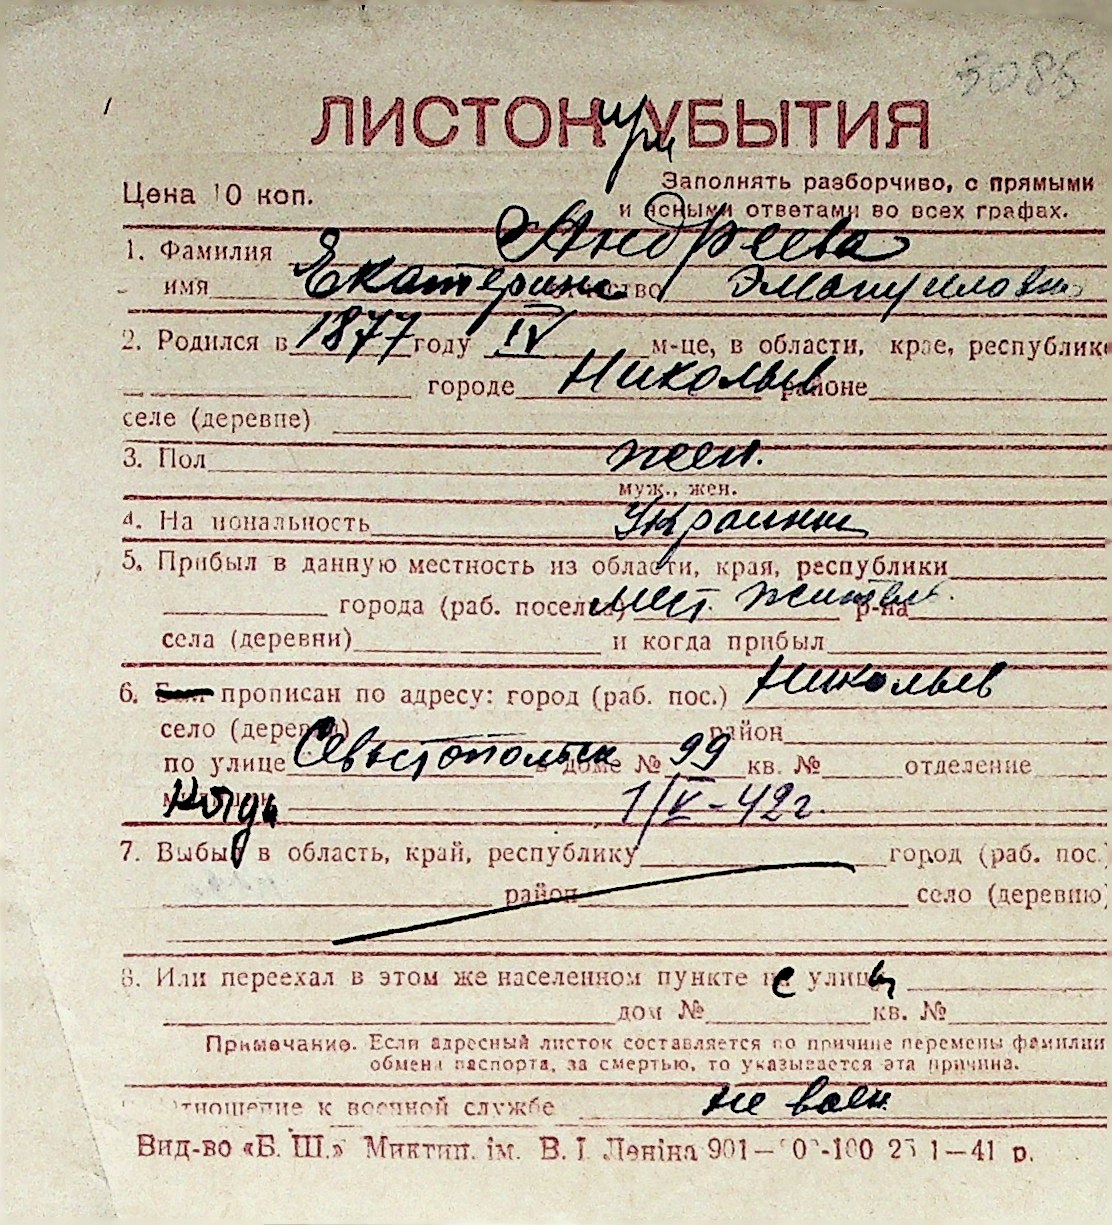 3085
ЛИСТОК УБЫТИЯ
при
Цена 10 коп.
Заполнять разборчиво, с прямыми
и ясными ответами во всех графах.
1. Фамилия Андреева
имя Екатерина отчество Эмануиловна
2. Родился в 1877 году IV м-це, в области, крае, республике
городе Николаев районе
селе (деревне)
3. Пол жен.
муж., жен.
4. Национальность Украинка
5. Прибыл в данную местность из области, края, республики
города (раб. поселка) мест. жител. р-на
села (деревни) и когда прибыл
6. Был прописан по адресу: город (раб. пос.) Николаев
село (деревня) район
по улице Севастопольск в доме № 99 кв. № отделение
милиции Когда 1/V-42 г.
7. Выбыл в область, край, республику город (раб. пос.)
район село (деревню)
8. Или переехал в этом же населенном пункте с улицы
дом № кв. №
Примечание. Если адресный листок составляется по причине перемены фамилии
обмена паспорта, за смертью, то указывается эта причина.
Отношение к военной службе не воен.
Вид-во «Б. Ш.» Миктип. ім. В. І Леніна 901— -100 25 1—41 р.